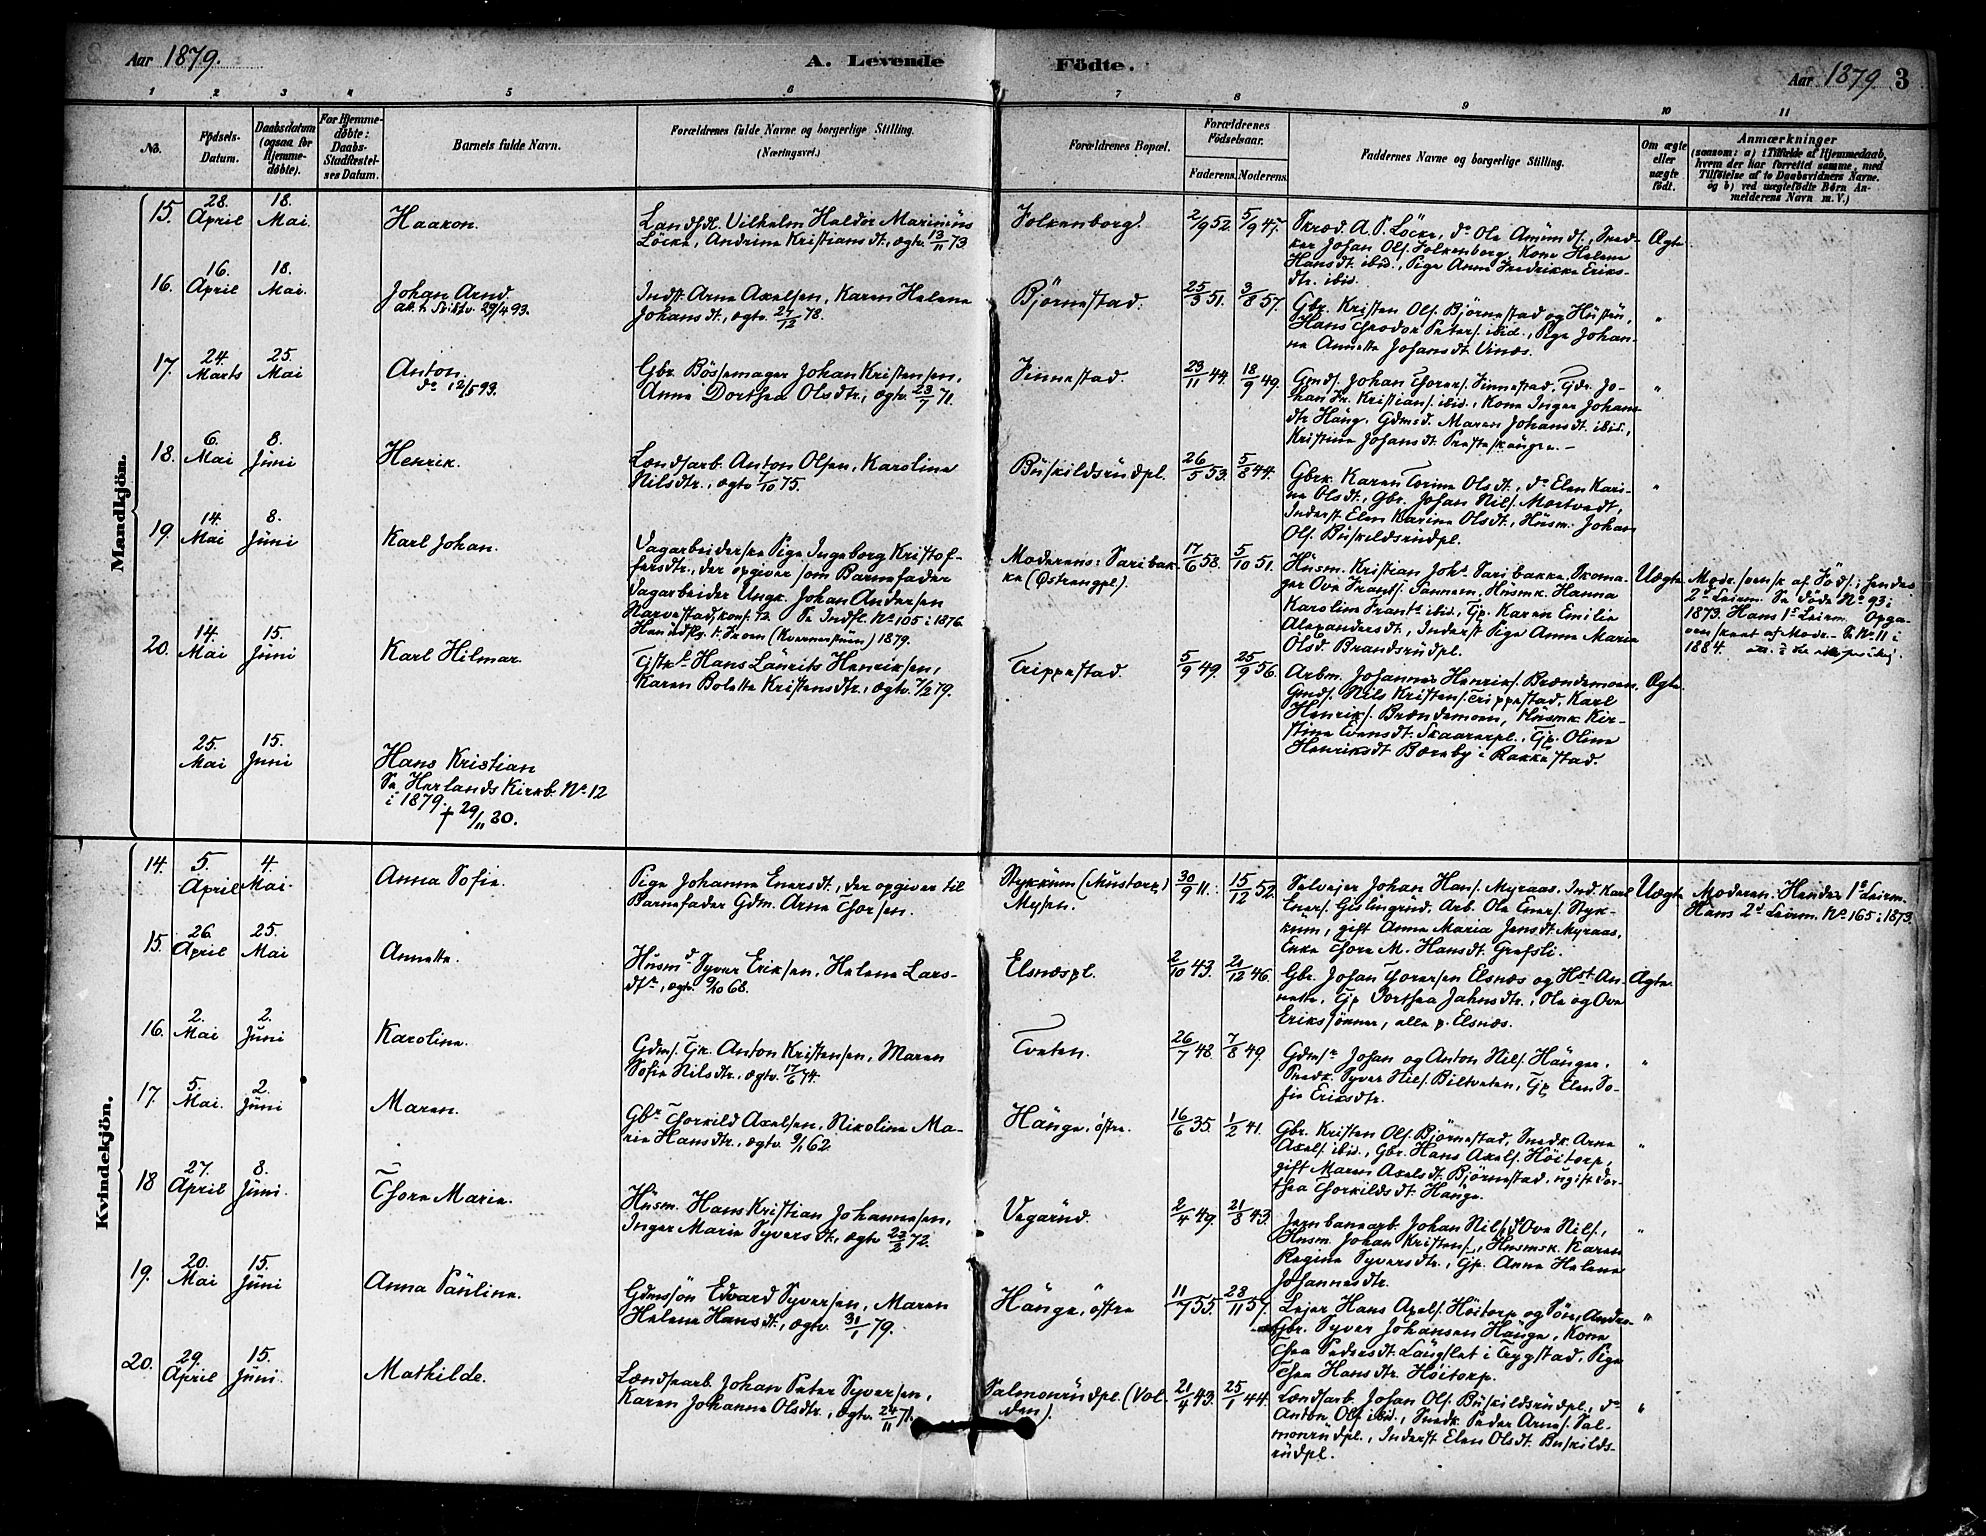 Aar 1879.
A. Levende Födte.
Aar 1879 3
1 2 3 4 5 6 7 8 9 10 11
No.
Fødsels-Datum.
Daabsdatum (ogsaa for Hjemmedøbte).
For Hjemmedøbte: Daabs-Stadfæstelses Datum.
Barnets fulde Navn.
Forældrenes fulde Navne og borgerlige Stilling.
(Næringsvei.)
Forældrenes Bopæl.
Forældrenes Födselsaar.
Faderens. Moderens.
Faddernes Navne og borgerlige Stilling.
Om ægte eller uægte født.
Anmærkninger
(saasom: a) i Tilfælde af Hjemmedaab, hvem der har forrettet samme, med Tilføielse af to Daabsvidners Navne, og b) ved uægtefødte Børn Anmelderens Navn m. V.)
Mandkjön.
15. 28. April 18. Mai. Haakon.
Landhdl. Vilhelm Haldor Marinius
Löcke, Andrine Kristiansdt, ægtv. 13/11 73
Folkenborg. 2/9 52. 5/9 47.
Skræd. A. P. Löcke, do Ola Amunds., Sned-
ker Johan Ols. Folkenborg, Kone Helene
Hansdt. ibid., Pige Anne Fredrikke Eriks-
dtr. ibid.
Ægte
16. 16. April 18. Mai. Johan Arnd.
att. t. 29/4 93.
Indst. Arne Axelsen, Karen Helene
Johansdt, ægtv. 27/12 78.
Björnestad. 25/3 51. 3/8 57.
Gbr. Kristen Ols. Björnestad og Hustru,
Hans Theodor Peters. ibid., Pige Johan-
ne Annette Johansdt Vinæs.
"
17. 24. Marts 25. Mai Anton.
do 12/5 93.
Gbr. Bössemager Johan Kristensen,
Anne Dorthea Olsdtr., ægtv. 23/7 71.
Finnestad. 23/11 44. 18/9 49.
Gmds. Johan Thores. Finnestad, Gdr. Jo-
han Fr. Kristians. ibid., Kone Inger Johans-
dtr Häng, Gdmsd. Maren Johansdt. ibid.,
Kristine Johansdt Presteskangen. -
"
18. 6. Mai 8. Juni Henrik.
Landsarb. Anton Olsen, Karoline
Nilsdtr., ægtv 1/10 75.
Buskildsrudpl. 26/5 53. 5/8 44.
Gbrk. Karen Torine Olsdt., do Elen Kari-
ne Olsdt., Gbr. Johan Nils. Mortvedt,
Inderst Elen Karine Olsdt, Husm. Johan
Ols. Buskildsrudpl.
"
19. 14. Mai 8. Juni Karl Johan.
Dagarbeiderske Pige Ingeborg Kristof-
fersdtr., der opgiver som Barnefader
Dagarbeider Ungk. Johan Andersen
Narvestad, konf. 73. Se Indfl. No 105 i 1876.
Han udflg. t. Trom (Kvernestuen) 1879.
Moderens: Saribak-
ke (Østrengpl). 17/6 58. 5/10 51.
Husm. Kristian Johs. Saribakke, Skoma-
ger Ove Frants. Sannem, Husmk. Hanna
Karoline Frants ibid., Gp. Karen Emilie
Alexandersdt., Inderst Pige Anne Marie
Olsd. Brandsrudpl.
Uægte Moder svensk af Föds.; hendes
2d Leierm. Se Föde No 93 i
1873. Hans 1ste Leierm. Opga-
ven skeet af Moder. Se No 11 i
1884.
20. 14. Mai 15. Juni Karl Hilmar.
Gstk. Hans Laurits Henriksen,
Karen Bolette Kristensdtr., ægtv. 7/2 79.
Trippestad. 5/9 49. 25/9 56.
Arbm. Johannes Henriks. Brændemoen,
Gmds. Nils Kristens. Trippestad, Karl
Henriks. Brændemoen, Husmk. Kir-
stine Evensdt. Skaarerpl., Gp. Oline
Henriksdt Bæreby i Rakkestad.
Ægte.
25. Mai 15. Juni Hans Kristian
Se Herlands Kirkeb. No 12
i 1879.
† 29/11 80.
Kvindekjön.
14. 5. April 4. Mai. Anna Sofie.
Pige Johanne Enersdt., der opgiver til
Barnefader Gdm. Arne Thorsen.
Stykkum (Mustorp)
Mysen. 30/9 11. 15/12 52.
Selvejer Johan Hans. Myraas, Ind. Karl
Eners. Gislingrud, Arb. Ole Eners. Styk-
kum, gift Anne Maria Jensdt. Myraas,
Enke Thore M. Hansdt Grefsli.
Uægte Moderen. Hendes 1ste Leierm.
Hans 2d Leierm. No 165 i 1873.
15. 26. April 25. Mai Annette.
Husmd Syver Eriksen, Helene Lars-
dtr., ægtv. 9/10 68.
Elsnæspl. 2/10 43. 21/12 46.
Gbr. Johan Thoresen Elsnæs og Hst. An-
nette, Gp Dorthea Jahnsdtr., Ole og Ove
Erikssönner, alle p. Elsnæs.
Ægte.
16. 2. Mai 2. Juni Karoline.
Gdms. Gk. Anton Kristensen, Maren
Sofie Nilsdtr., ægtv. 17/6 74.
Tveten. 26/7 48. 7/8 49.
Gdmsr Johan og Anton Nils. Hänger,
Snedk. Syver Nils. Biltveten, Gp Elen So-
fie Eriksdtr.
"
17. 5. Mai. 2. Juni Maren.
Gbr Thorkild Axelsen, Nikoline Ma-
rie Hansdtr., ægtv. 9/1 62.
Hänge, östre. 16/6 35. 1/2 41.
Gbr. Kristen Ols. Björnestad, Snedk. Arne
Axels. ibid., Gbr. Hans Axels. Höitorp,
gift Maren Axelsdt. Björnestad, ugift Dor-
thea Thorkildsdt. Hänge.
"
18 27. April 8. Juni. Thora Marie.
Husm. Hans Kristian Johannesen,
Inger Marie Syversdt., ægtv 23/2 72.
Vegarud. 2/4 49. 21/8 43.
Jernbanearb. Johan Nils., do Ove Nils.,
Husm. Johan Kristens., Husmsk. Karen
Regine Syversdtr., Gp. Anne Helene
Johannesdtr.
"
19. 20. Mai 15. Juni Anna Pauline.
Gdmssön Edvard Syversen, Maren
Helene Hansdt., ægtv. 31/1 79.
Hänge, östre 11/7 55. 28/11 57.
Lejer Hans Axels. Höitorp og Sön, Andr-
eas, Gbr. Syver Johansen Hänge, Kone
Thea Pedersdt Langslet i Trygstad, Pige
Thea Hansdtr. Höitorp.
"
20. 29. April 15. Juni. Mathilde.
Landsarb. Johan Peter Syversen,
Karen Johanne Olsdtr., ægtv. 24/11 71.
Salmonrudpl. (Vol-
den). 21/4 43. 25/1 44.
Landsarb. Johan Ols. Buskildsrudpl., do
Anton Ols ibid., Snedk. Peder Arnes. Sal-
monrudpl., Inderst Elen Olsdt. Buskilds-
rudpl.
"